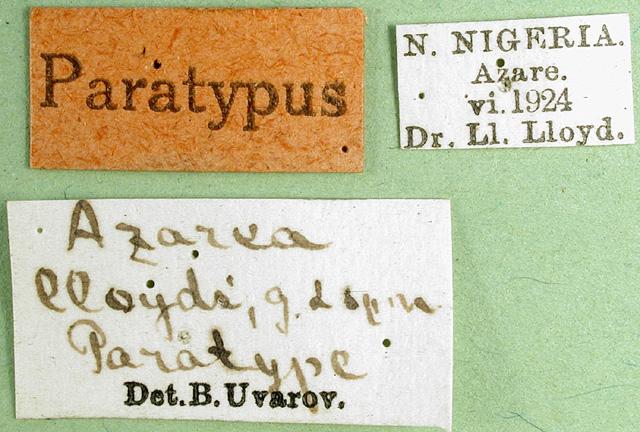 Paratypus
N. NIGERIA.
Azare.
vi. 1924
Dr. Ll. Lloyd.
Azarea
lloydi, g. & sp. n.
Paratype
Det. B. Uvarov.